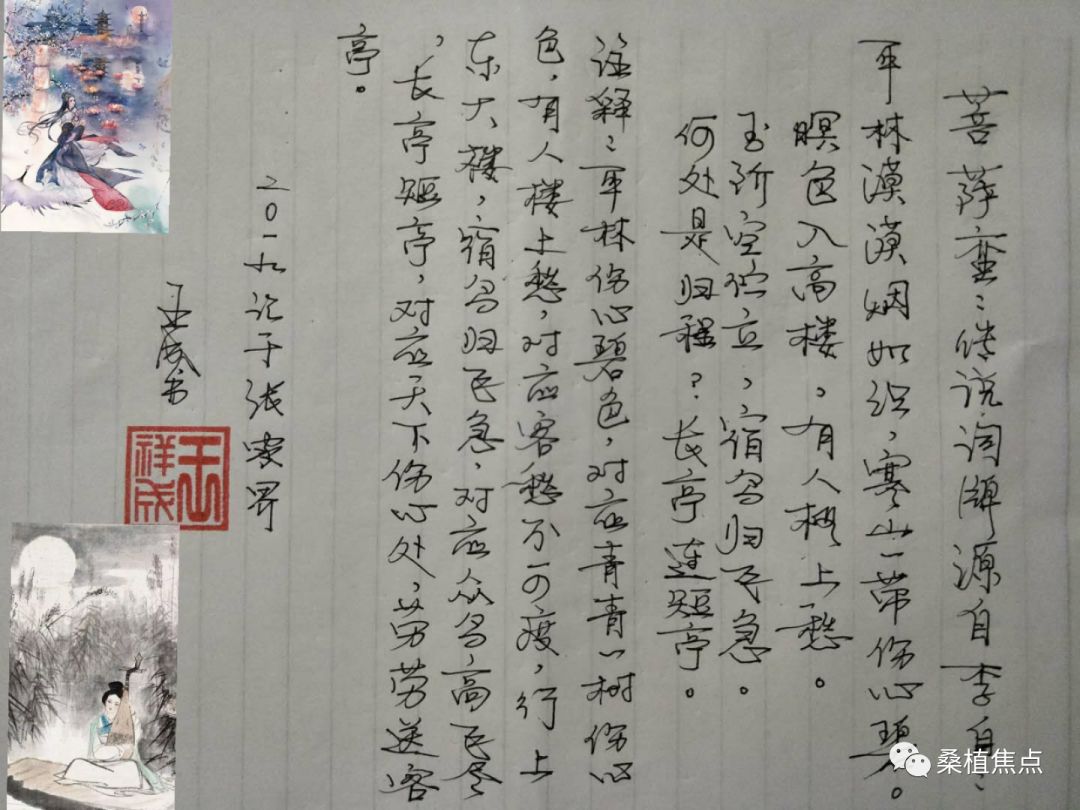 菩萨蛮:传说词牌源自李白:
平林漠漠烟如织,寒山一带伤心碧。
暝色入高楼。有人楼上愁。
玉阶空伫立,宿鸟归飞急。
何处是归程?长亭连短亭。
注释:平林伤心碧色,对应青青一树伤心
色,有人楼上愁,对应客愁不可度,行上
东大楼,宿鸟归飞急,对应众鸟高飞尽
,长亭短亭,对应天下伤心处,劳劳送客
亭。
二0一九记于张家界
王成书
祥成
桑植焦点